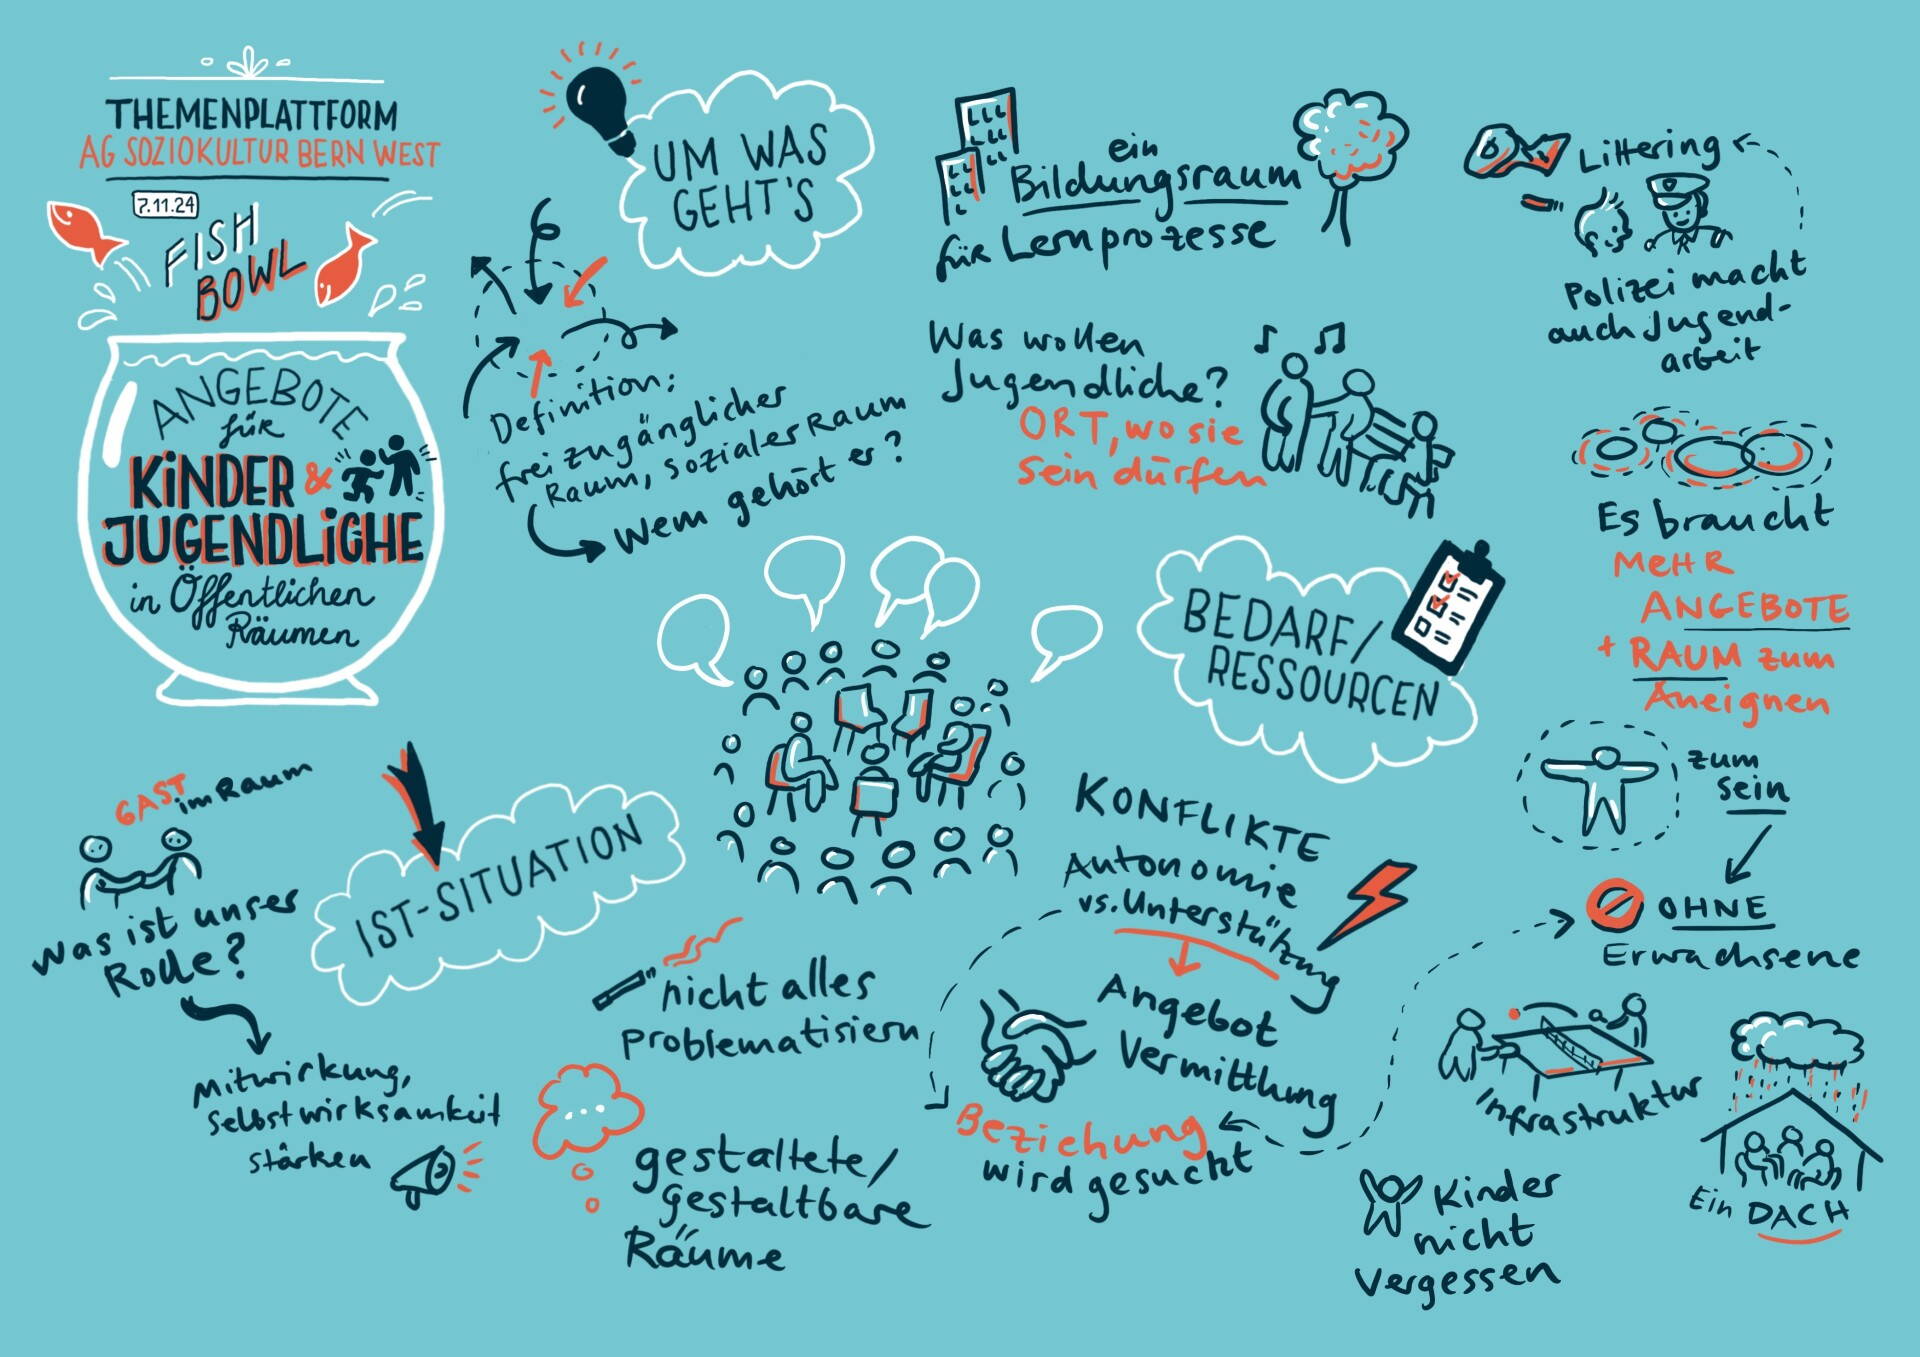 THEMENPLATTFORM
AG SOZIOKULTUR BERN WEST
7.11.24
FISH
BOWL
ANGEBOTE
für
KINDER &
JUGENDLICHE
in Öffentlichen
Räumen
UM WAS
GEHT'S
Definition:
frei zugänglicher
Raum, sozialer Raum
Wem gehört er?
ein
Bildungsraum
für Lernprozesse
Was wollen
Jugendliche?
ORT, wo sie
sein dürfen
Littering
Polizei macht
auch Jugend-
arbeit
BEDARF/
RESSOURCEN
Es braucht
MEHR
ANGEBOTE
+ RAUM zum
Aneignen
zum
sein
OHNE
Erwachsene
Infrastruktur
Ein DACH
Kinder
nicht
vergessen
KONFLIKTE
Autonomie
vs. Unterstützung
Angebot
Vermittlung
Beziehung
wird gesucht
IST-SITUATION
GAST im Raum
Was ist unser
Rolle?
Mitwirkung,
Selbstwirksamkeit
stärken
nicht alles
problematisiern
gestaltete/
gestaltbare
Räume